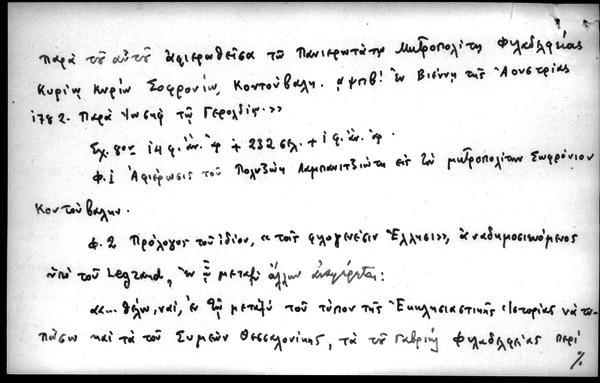 παρὰ τοῦ αὐτοῦ ἀφιερωθεῖσα τῷ Πανιερωτάτῳ Μητροπολίτῃ Φιλαδελφείας
Κυρίῳ Κυρίῳ Σοφρονίῳ, Κοντούβαλῃ. ͵αψπβ! ἐν Βιέννῃ τῆς Ἀουστρίας
1782. Παρὰ Ἰωσὴφ τῷ Γερολδίῳ.»
Σχ. 8ον 14 φ. ἀν. ἀρ + 232 σελ. + 1 φ. ἀν. ἀρ.
φ. 1 Ἀφιέρωσις τοῦ Πολυζώη Λαμπανιτζιώτη εἰς τὸν μητροπολίτην Σωφρόνιον
Κοντούβαλην.
φ. 2 Πρόλογος τοῦ ἰδίου, «τοῖς φιλογενέσιν Ἕλλησι», ἀναδημοσιευόμενος
ὑπὸ τοῦ Legrand, ἐν ᾧ μεταξὺ ἄλλων ἀναφέρεται:
«... θέλω, ναί, ἐν τῷ μεταξὺ τοῦ τύπου τῆς Ἐκκλησιαστικῆς Ἱστορίας νὰ τυ-
πώσω καὶ τὰ τοῦ Συμεὼν Θεσσαλονίκης, τὰ τοῦ Γαβριὴλ Φιλαδελφείας περὶ
%